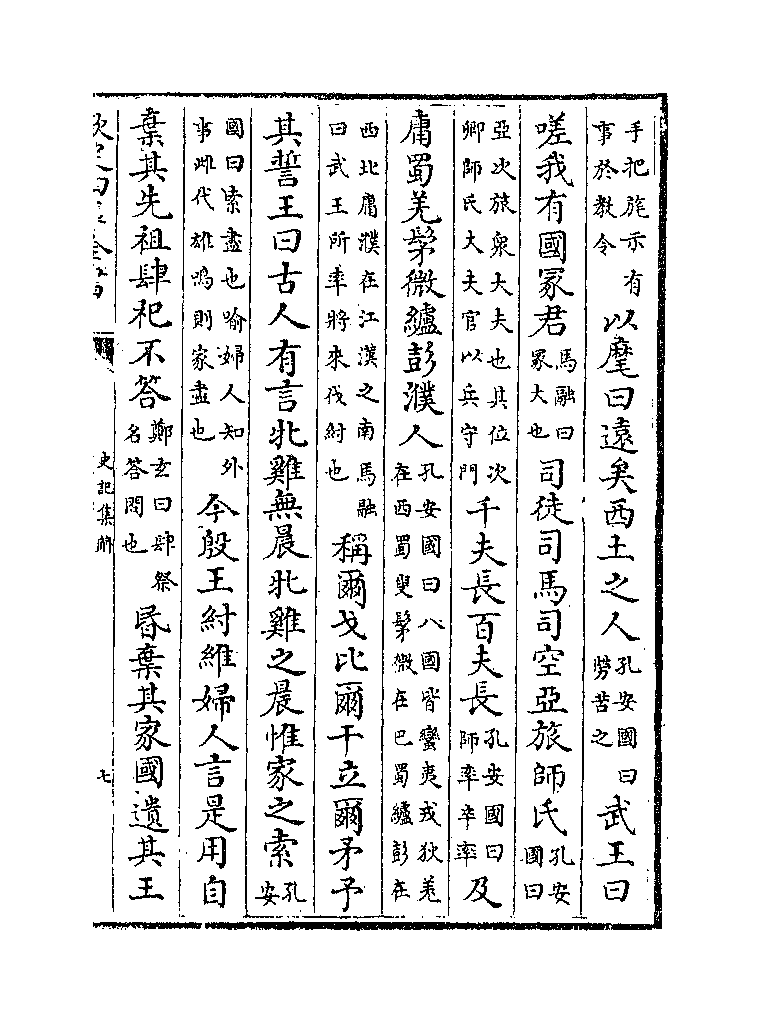 手把旄示有事於教令以麾曰遠矣西土之人孔安國曰勞苦之武王曰
嗟我有國冢君馬融曰冢大也司徒司馬司空亞旅師氏孔安國曰
亞次旅衆大夫也其位次卿師氏大夫官以兵守門千夫長百夫長孔安國曰師率卒率及
庸蜀羌髳微纑彭濮人孔安國曰八國皆蠻夷戎狄羌在西蜀叟髳微在巴蜀纑彭在
西北庸濮在江漢之南馬融曰武王所率將來伐紂也稱爾戈比爾干立爾矛予
其誓王曰古人有言牝雞無晨牝雞之晨惟家之索孔安
國曰索盡也喻婦人知外事雌代雄鳴則家盡也今殷王紂維婦人言是用自
棄其先祖肆祀不答鄭玄曰肆祭名答問也昬棄其家國遺其王
欽定四庫全書 史記集解 七